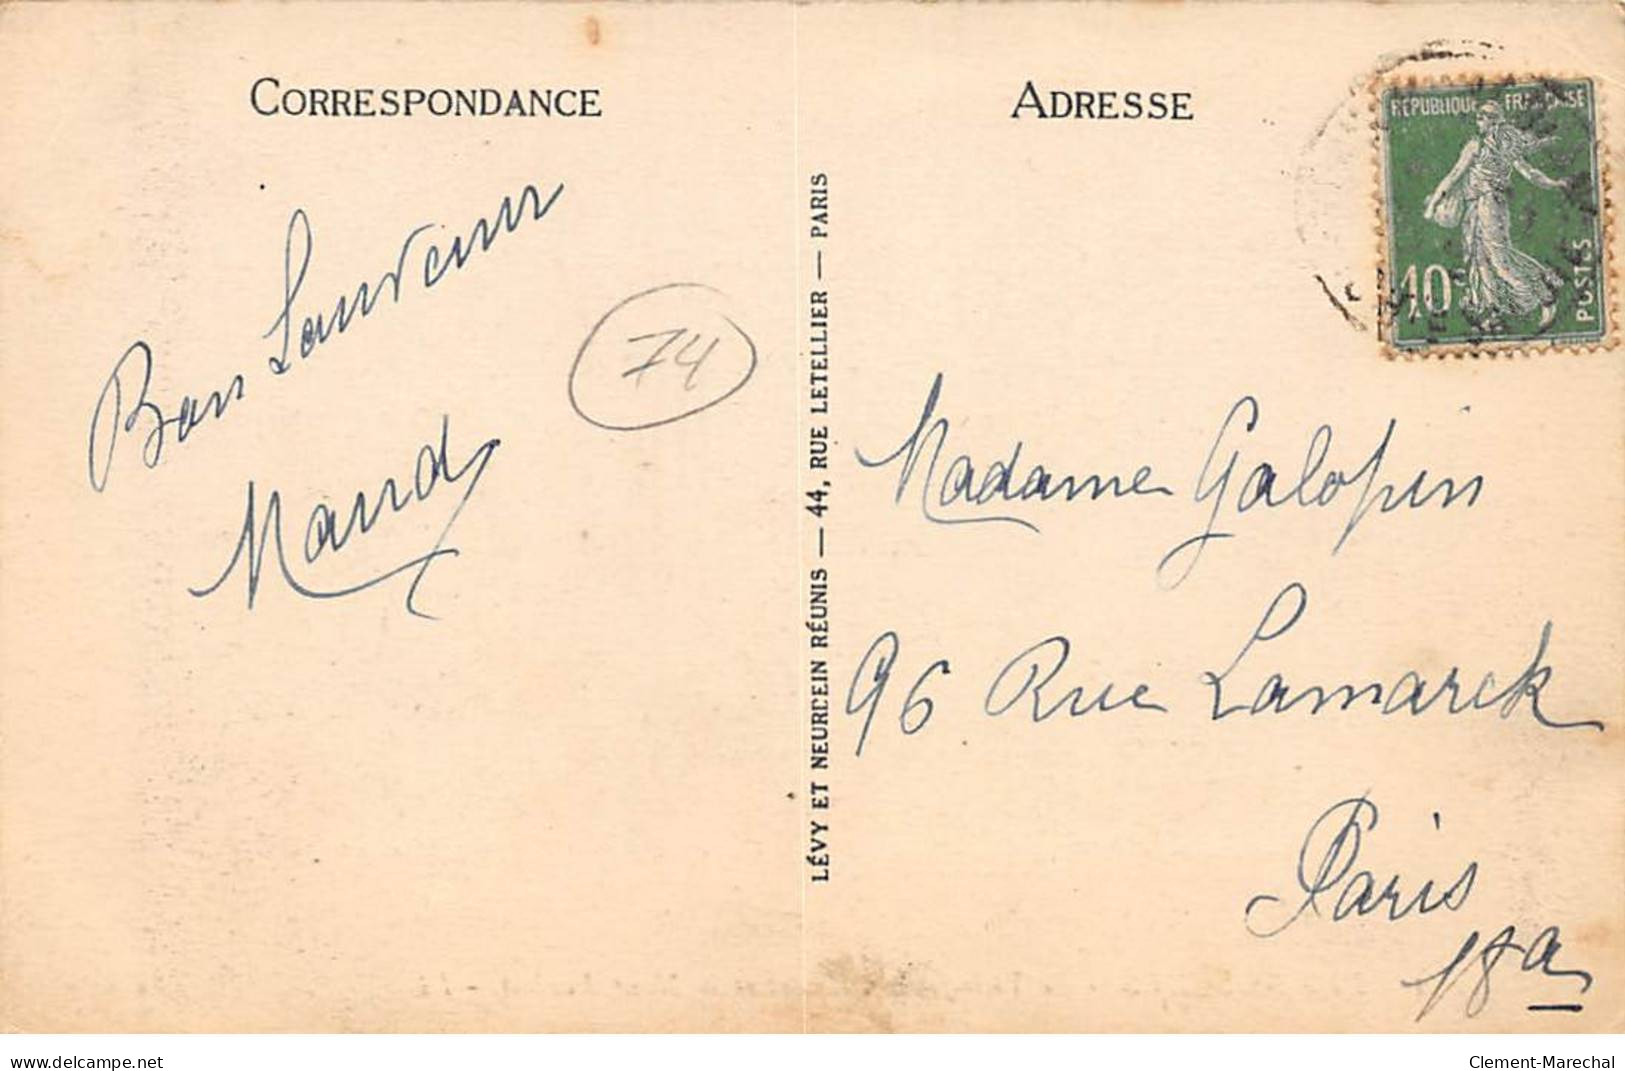 CORRESPONDANCE
Bon Souvenir
Maud
74
LÉVY ET NEURDEIN RÉUNIS — 44, RUE LETELLIER — PARIS
ADRESSE
RÉPUBLIQUE FRANÇAISE
10c
POSTES
Madame Galopin
96 Rue Lamarck
Paris
18a
www.delcampe.net
Clement-Marechal